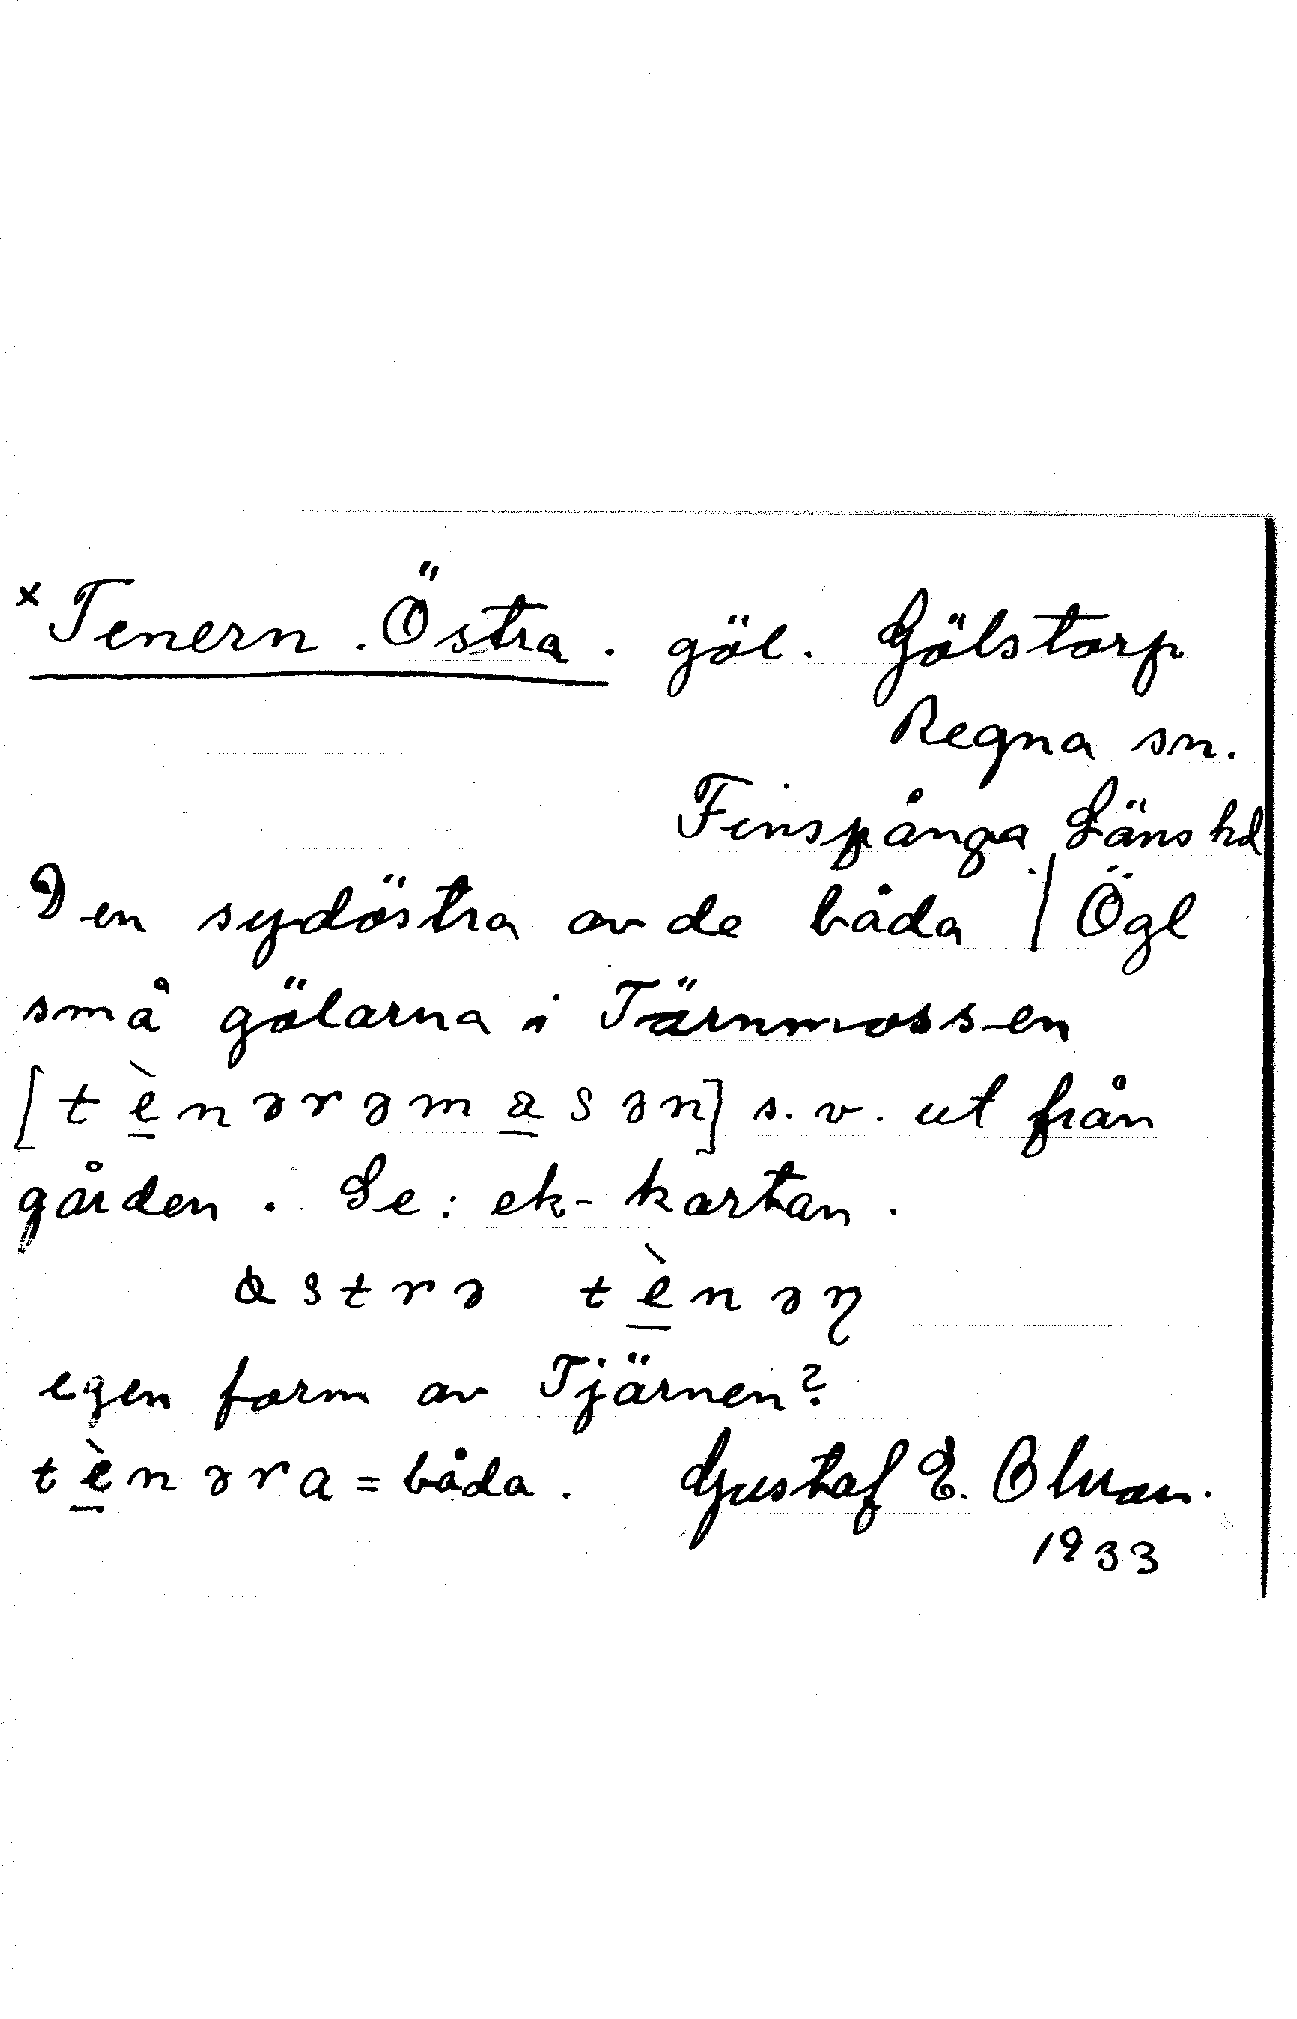 × Tenern. Östra. göl. Gölstorp
Regna sn.
Finspånga Läns hd
Den sydöstra av de båda / Ögl
små gölarna i Tärnmossen
[tènərəmasən] s.v. ut från
gården. Se: ek-kartan.
ɑstrə tènəŋ
egen form av Tjärnen?
tènəra = båda. Gustaf E.
1933